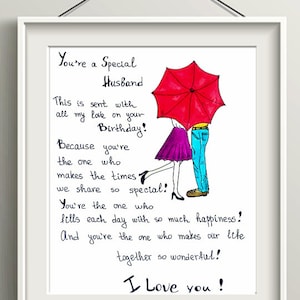 You're a Special
Husband
This is sent with
all my love on your
Birthday!
Because you're
the one who
makes the times
we share so special!
You're the one who
fills each day with so much happiness!
And you're the one who makes our life
together so wonderful!
I Love you!